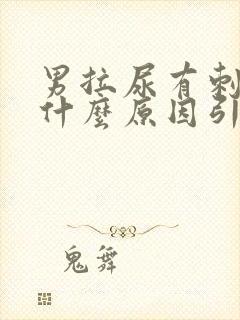 男拉尿有刺
什麼原因引
鬼舞